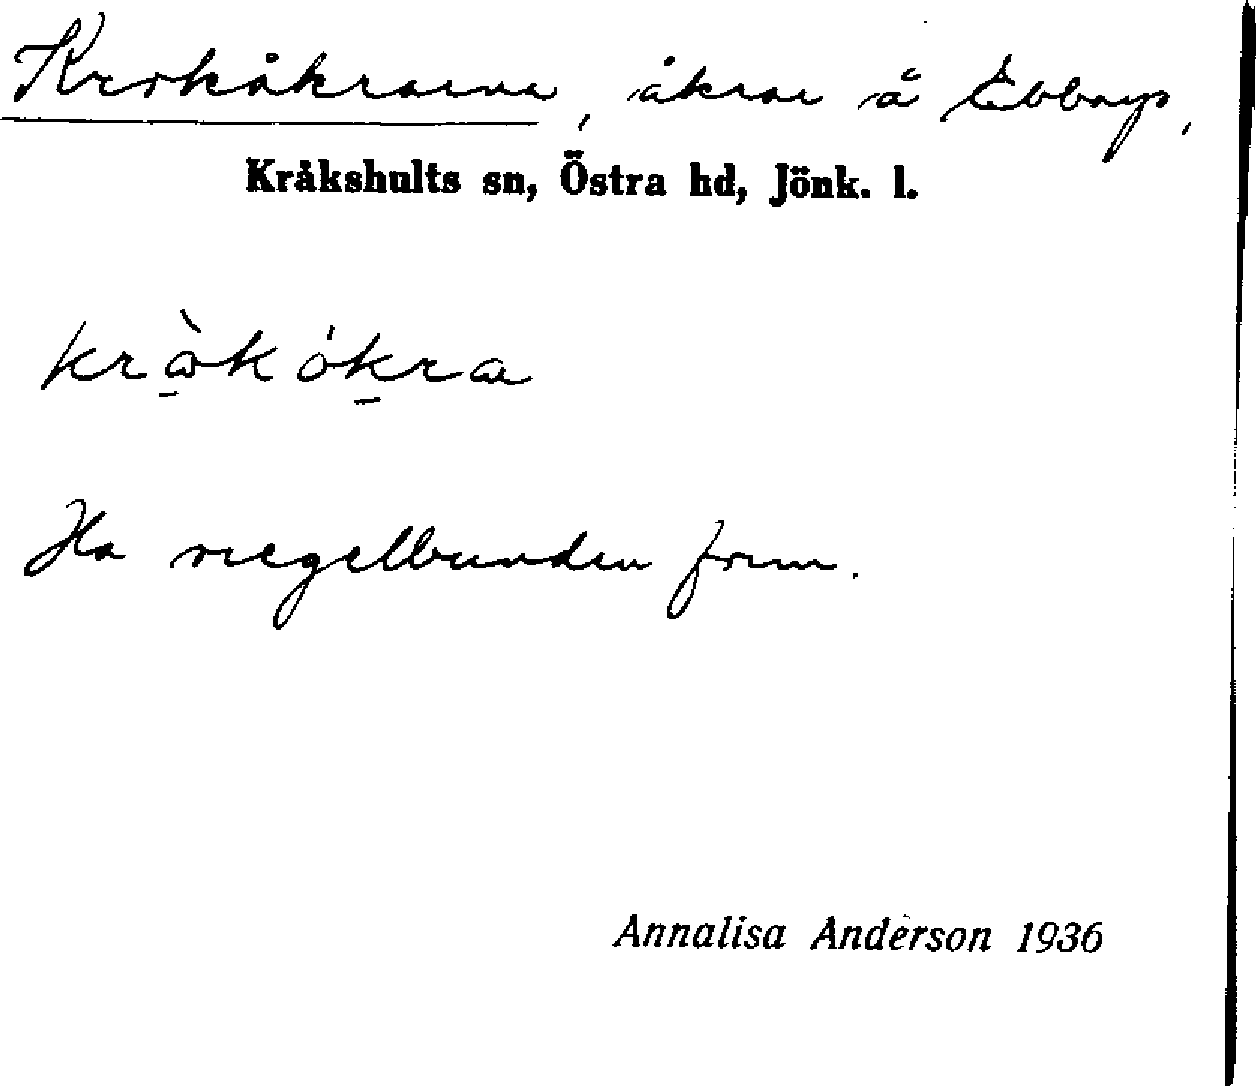 Krokåkrarna, åkrar å Ebbarp,
Kråkshults sn, Östra hd, Jönk. l.
Ha oregelbunden form.
Annalisa Anderson 1936